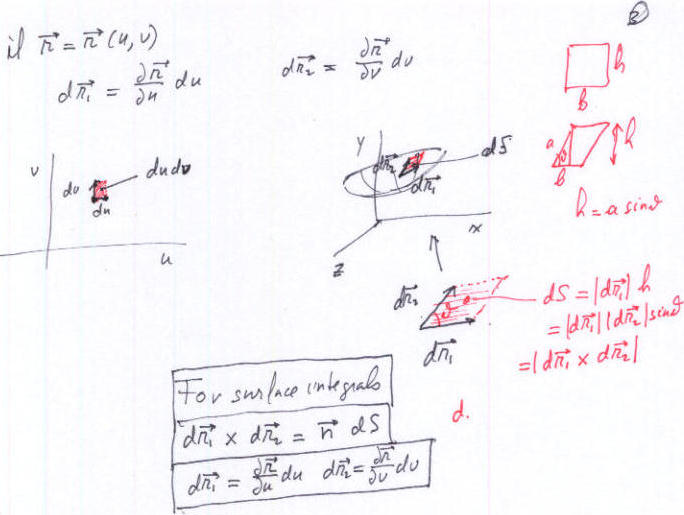 ②
if r⃗ = r⃗ (u, v)
dr⃗₁ = ∂r⃗/∂u du
dr⃗₂ = ∂r⃗/∂v dv
h
b
v
dv
du dv
du
u
y
dr⃗₂
dS
dr⃗₁
x
z
a
ϑ
h
b
h = a sinϑ
dr⃗₂
ϑ
dr⃗₁
dS = |dr⃗₁| h
= |dr⃗₁| |dr⃗₂| sinϑ
= |dr⃗₁ × dr⃗₂|
d.
For surface integrals
dr⃗₁ × dr⃗₂ = n⃗ dS
dr⃗₁ = ∂r⃗/∂u du dr⃗₂ = ∂r⃗/∂v dv